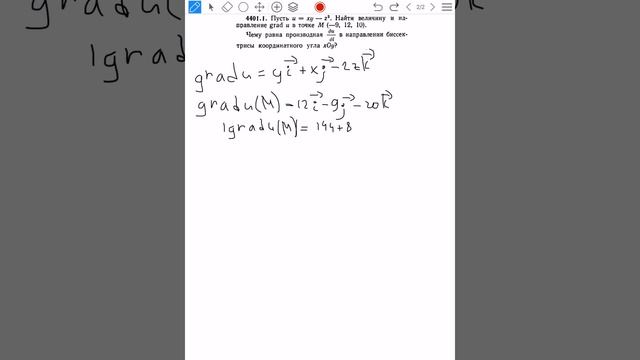 2/2
4401.1. Пусть u = xy — z². Найти величину и на-
правление grad u в точке M (—9, 12, 10).
Чему равна производная du/dl в направлении биссек-
трисы координатного угла xOy?
grad u = y i⃗ + x j⃗ - 2z k⃗
grad u(M) - 12 i⃗ - 9 j⃗ - 20 k⃗
|grad u(M)| = 144 + 8
grad u
|grad
k